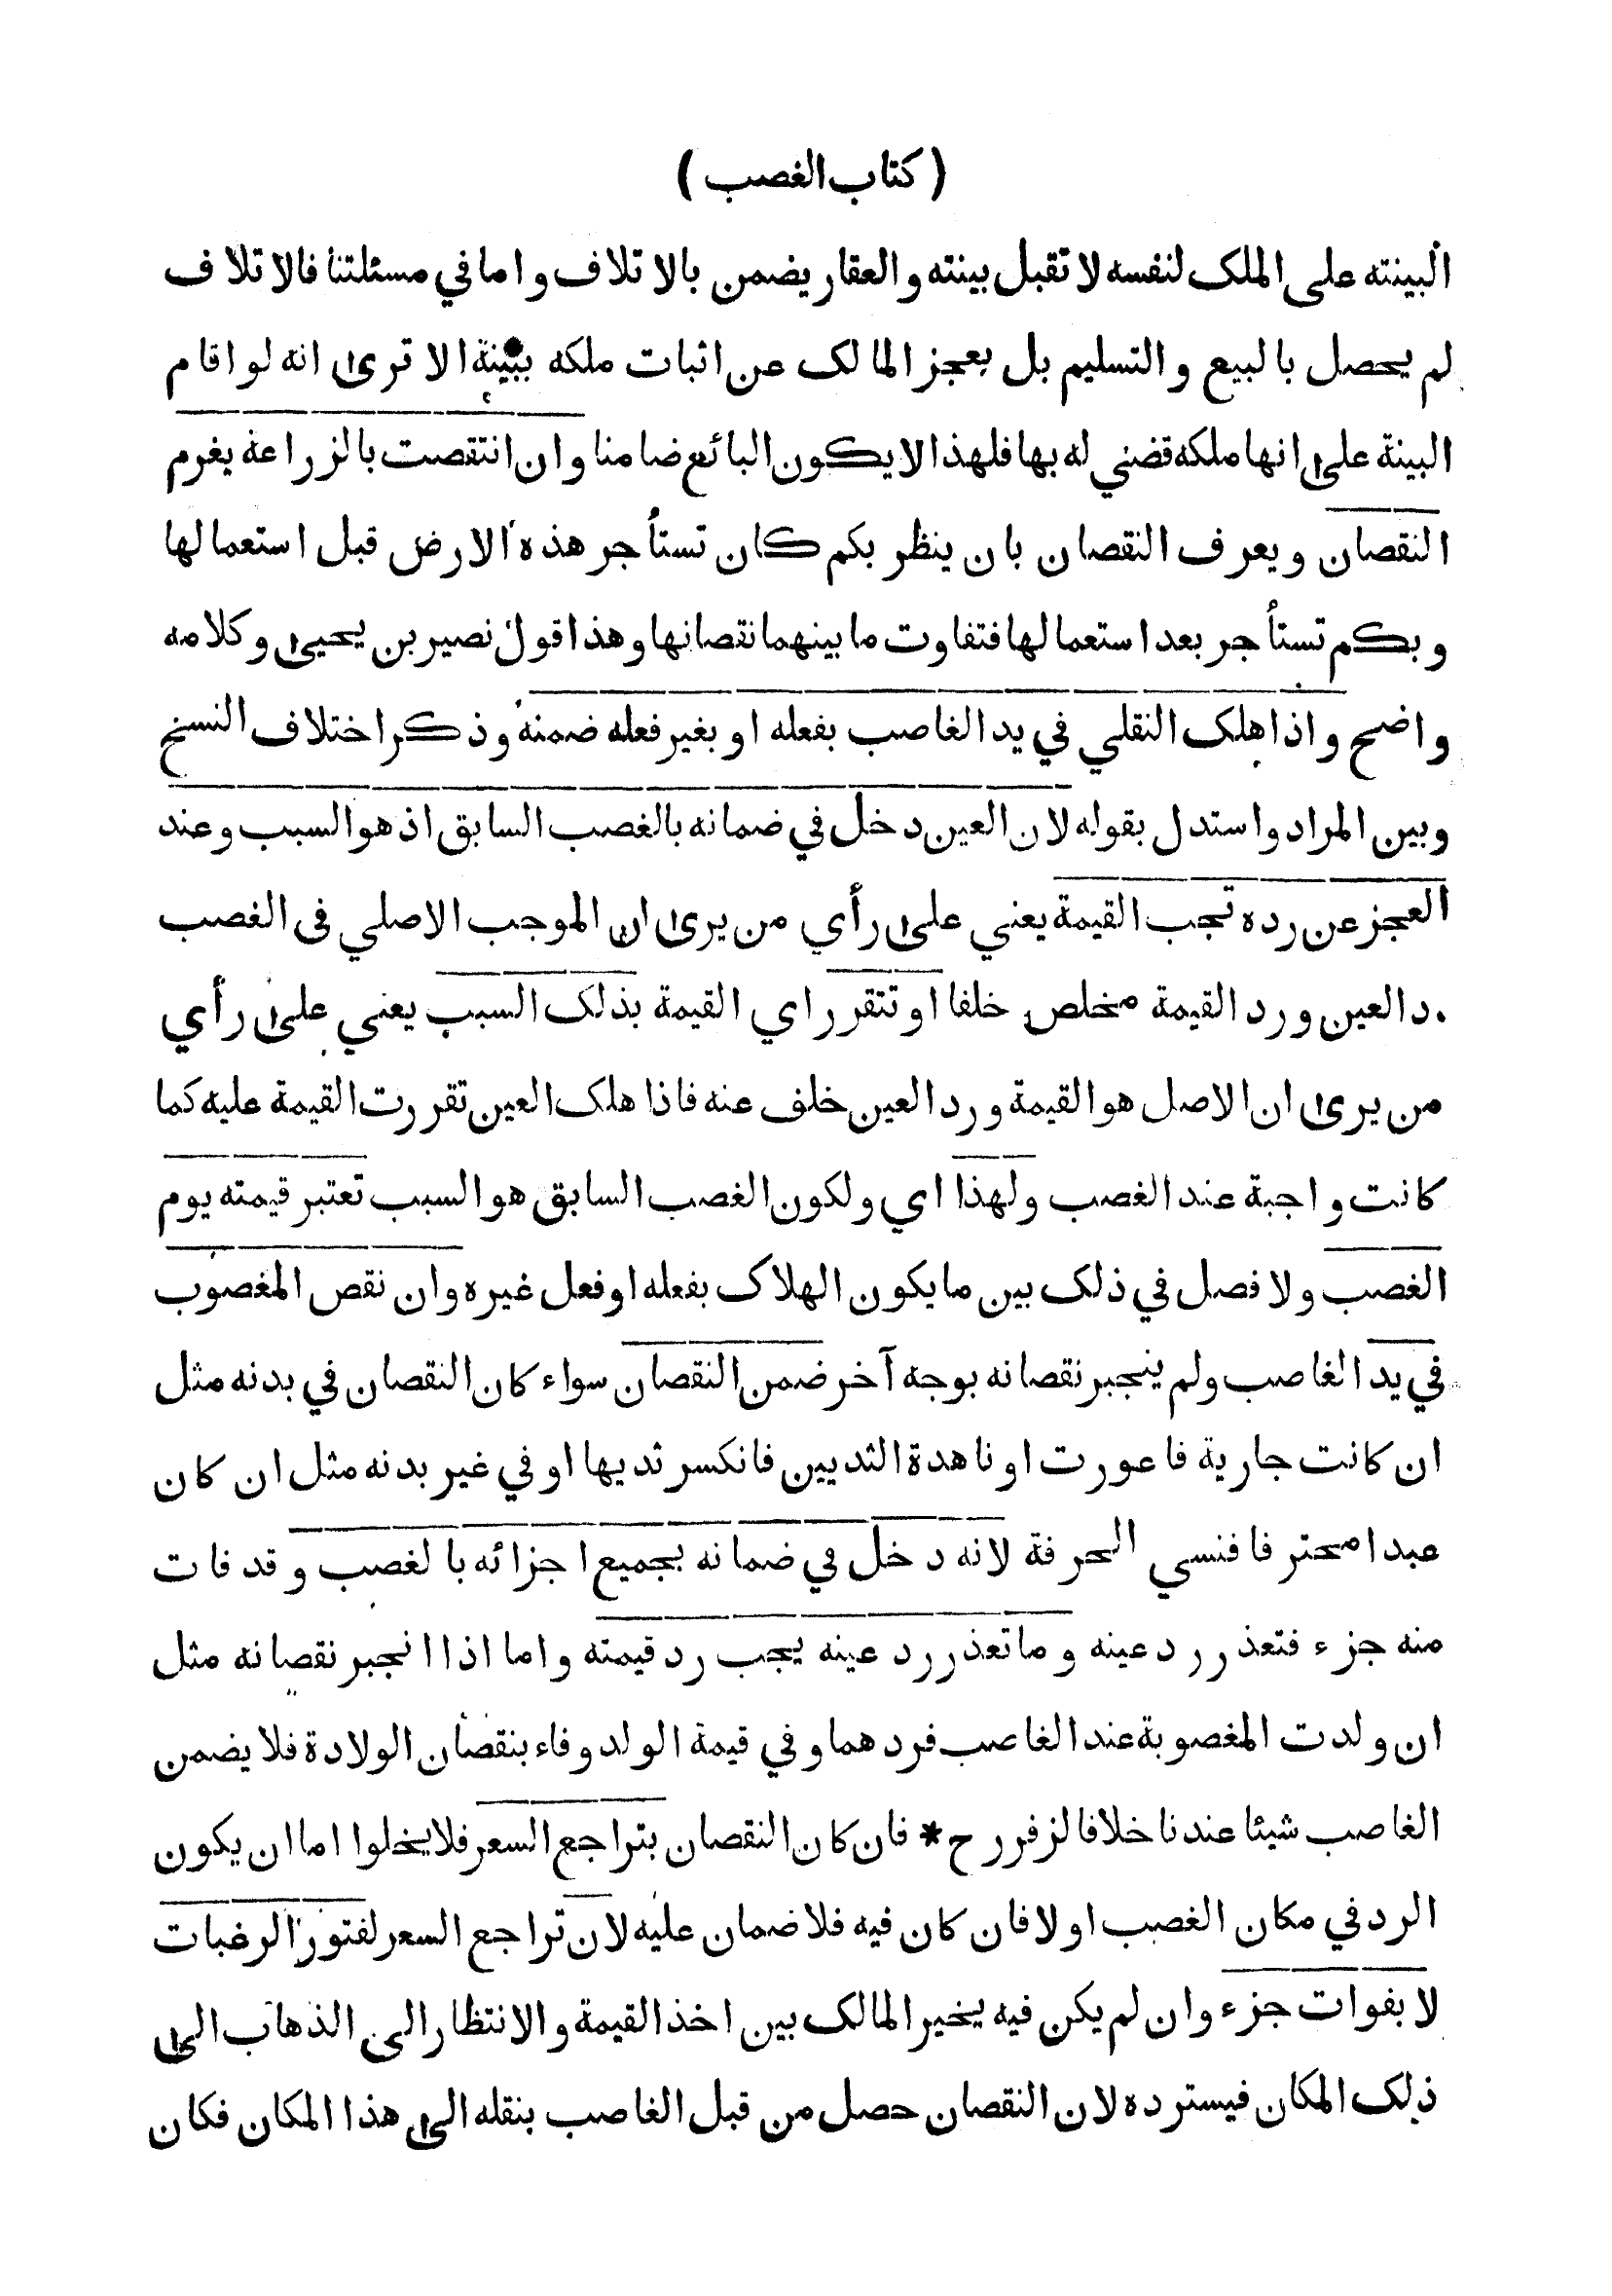 ( كتاب الغصب )
البينته على الملك لنفسه لا تقبل بينته والعقار يضمن بالاتلاف واما في مسئلتنا فالاتلاف
لم يحصل بالبيع والتسليم بل بعجز المالك عن اثبات ملكه ببينة الا ترى انه لو اقام
البينة على انها ملكه قضي له بها فلهذا لا يكون البائع ضامنا وان انتقصت بالزراعة يغرم
النقصان ويعرف النقصان بان ينظر بكم كان تستأجر هذه الارض قبل استعمالها
وبكم تستأجر بعد استعمالها فتفاوت ما بينهما نقصانها وهذا قول نصير بن يحيى وكلامه
واضح واذا هلك النقلي في يد الغاصب بفعله او بغير فعله ضمنه وذكر اختلاف النسخ
وبين المراد واستدل بقوله لان العين دخل في ضمانه بالغصب السابق اذ هو السبب وعند
العجز عن رده تجب القيمة يعني على رأي من يرى ان الموجب الاصلي فى الغصب
رد العين ورد القيمة مخلص خلفا او تتقرر اي القيمة بذلك السبب يعني على رأي
من يرى ان الاصل هو القيمة ورد العين خلف عنه فاذا هلك العين تقررت القيمة عليه كما
كانت واجبة عند الغصب ولهذا اي ولكون الغصب السابق هو السبب تعتبر قيمته يوم
الغصب ولا فصل في ذلك بين ما يكون الهلاك بفعله او فعل غيره وان نقص المغصوب
في يد الغاصب ولم ينجبر نقصانه بوجه آخر ضمن النقصان سواء كان النقصان في بدنه مثل
ان كانت جارية فاعورت او ناهدة الثديين فانكسر ثديها او في غير بدنه مثل ان كان
عبدا محترفا فنسي الحرفة لانه دخل في ضمانه بجميع اجزائه بالغصب وقد فات
منه جزء فتعذر رد عينه وما تعذر رد عينه يجب رد قيمته واما اذا انجبر نقصانه مثل
ان ولدت المغصوبة عند الغاصب فردهما وفي قيمة الولد وفاء بنقصان الولادة فلا يضمن
الغاصب شيئا عندنا خلافا لزفر رح * فان كان النقصان بتراجع السعر فلا يخلوا اما ان يكون
الرد في مكان الغصب اولا فان كان فيه فلا ضمان عليه لان تراجع السعر لفتور الرغبات
لا بفوات جزء وان لم يكن فيه يخير المالك بين اخذ القيمة والانتظار الى الذهاب الى
ذلك المكان فيسترده لان النقصان حصل من قبل الغاصب بنقله الى هذا المكان فكان